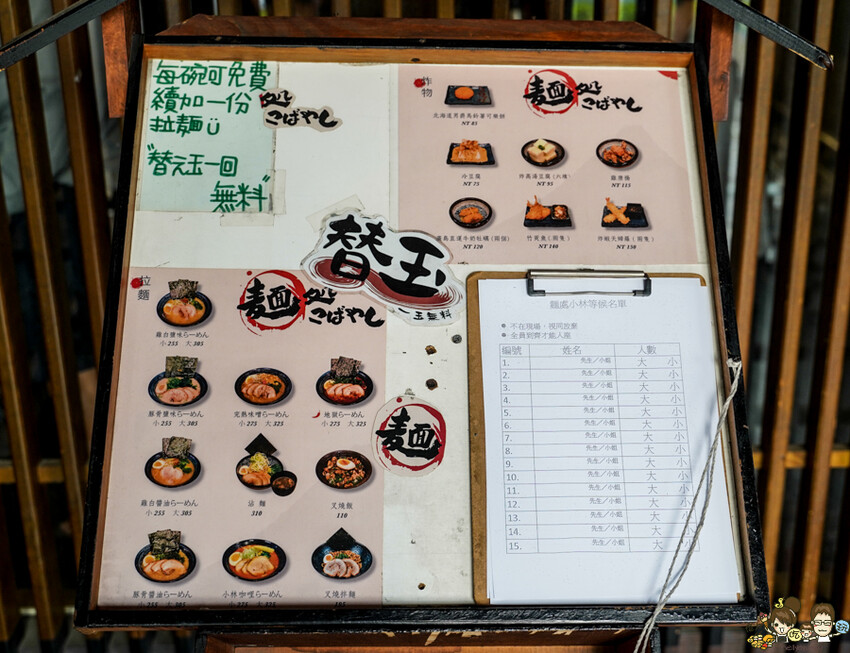 每碗可免費
續加一份
拉麵
"替え玉一回
無料"
処
こばやし
炸物
麺
こばやし
NT 85
冷豆腐
NT 75
炸高湯豆腐(六塊)
NT 95
雞唐揚
NT 115
廣島直送牛奶牡蠣(兩個)
NT 120
竹莢魚(兩隻)
NT 160
炸蝦天婦羅(兩隻)
NT 150
替玉
一玉無料
拉麵
麺処
こばやし
雞白鹽味らーめん
小 255 大 305
豚骨鹽味らーめん
小 255 大 305
完熟味噌らーめん
小 275 大 325
地獄らーめん
小 275 大 325
雞白醬油らーめん
小 255 大 305
沾麵
310
叉燒飯
110
豚骨醬油らーめん
小 255 大 305
小林咖哩らーめん
小 275 大 325
叉燒拌麵
麺
麵處小林等候名單
不在現場,視同放棄
全員到齊才能入座
編號 姓名 人數
1. 先生/小姐 大 小
2. 先生/小姐 大 小
3. 先生/小姐 大 小
4. 先生/小姐 大 小
5. 先生/小姐 大 小
6. 先生/小姐 大 小
7. 先生/小姐 大 小
8. 先生/小姐 大 小
9. 先生/小姐 大 小
10. 先生/小姐 大 小
11. 先生/小姐 大 小
12. 先生/小姐 大 小
13. 先生/小姐 大 小
14. 先生/小姐 大 小
15. 先生/小姐 大 小